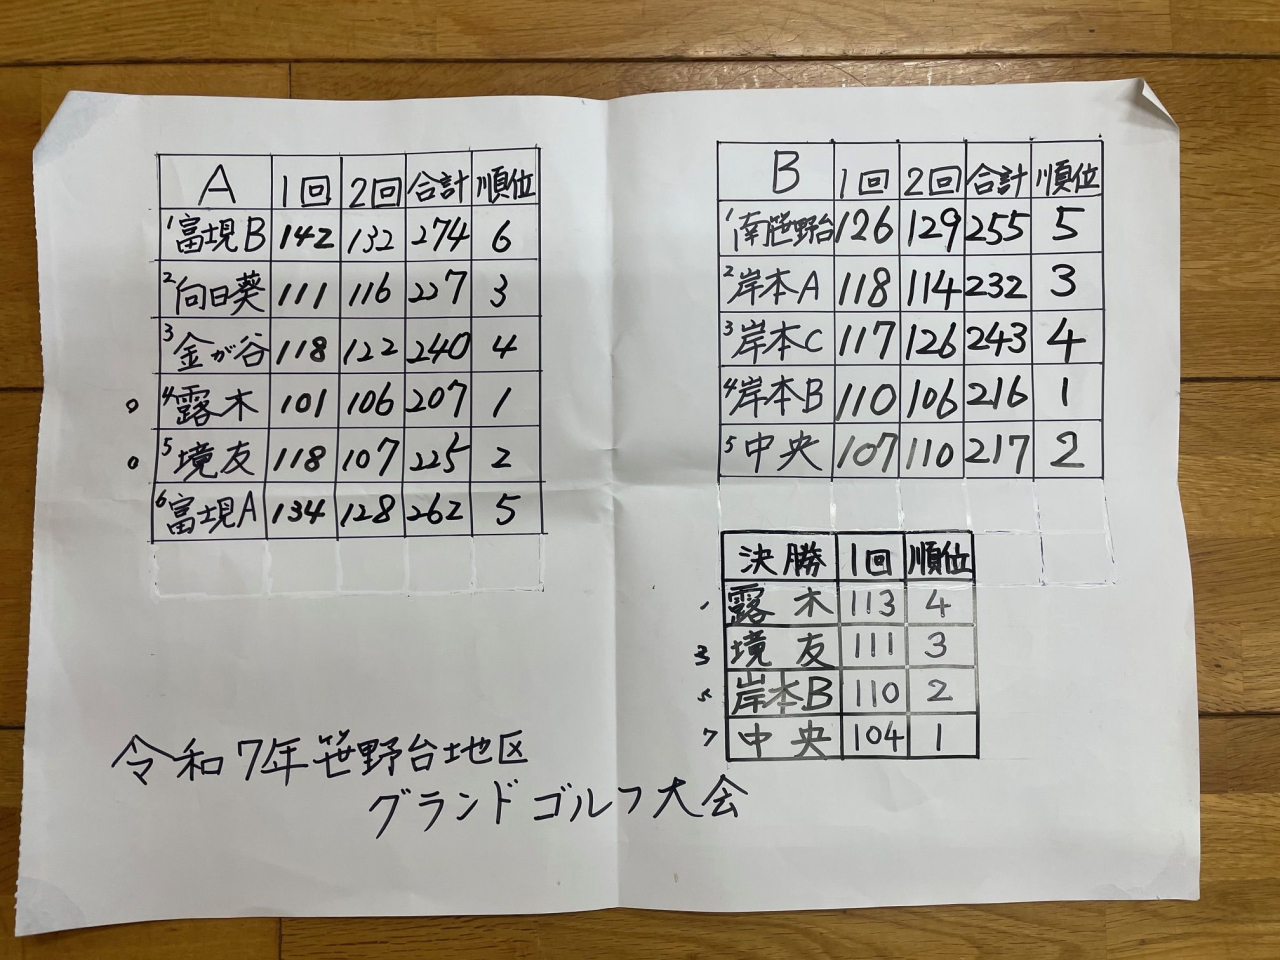 A 1回 2回 合計 順位
1 富士見B 142 132 274 6
2 向日葵 111 116 227 3
3 金が谷 118 122 240 4
o 4 露木 101 106 207 1
o 5 境友 118 107 225 2
6 富士見A 134 128 262 5
B 1回 2回 合計 順位
1 南笹野台 126 129 255 5
2 岸本A 118 114 232 3
3 岸本C 117 126 243 4
4 岸本B 110 106 216 1
5 中央 107 110 217 2
決勝 1回 順位
露木 113 4
3 境友 111 3
5 岸本B 110 2
7 中央 104 1
令和7年笹野台地区
グランドゴルフ大会